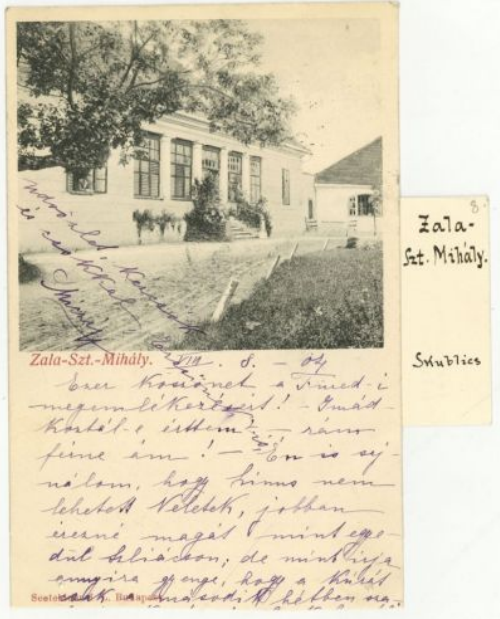 üdvözlet
és csókkal
Zala-Szt.-Mihály. VIII. 8. - 04
Ezer köszönet a Füred-i
megemlékezésért! - Imád-
koztál-e értem - rám
férne ám! - Én is saj-
nálom, hogy Linus nem
lehetett Veletek, jobban
érezné magát mint egye-
dül Szliácson; de mint írja
annyira gyenge, hogy a kúrát
csak második hétben
Budapest
8.
Zala-
Szt. Mihály.
Skublics